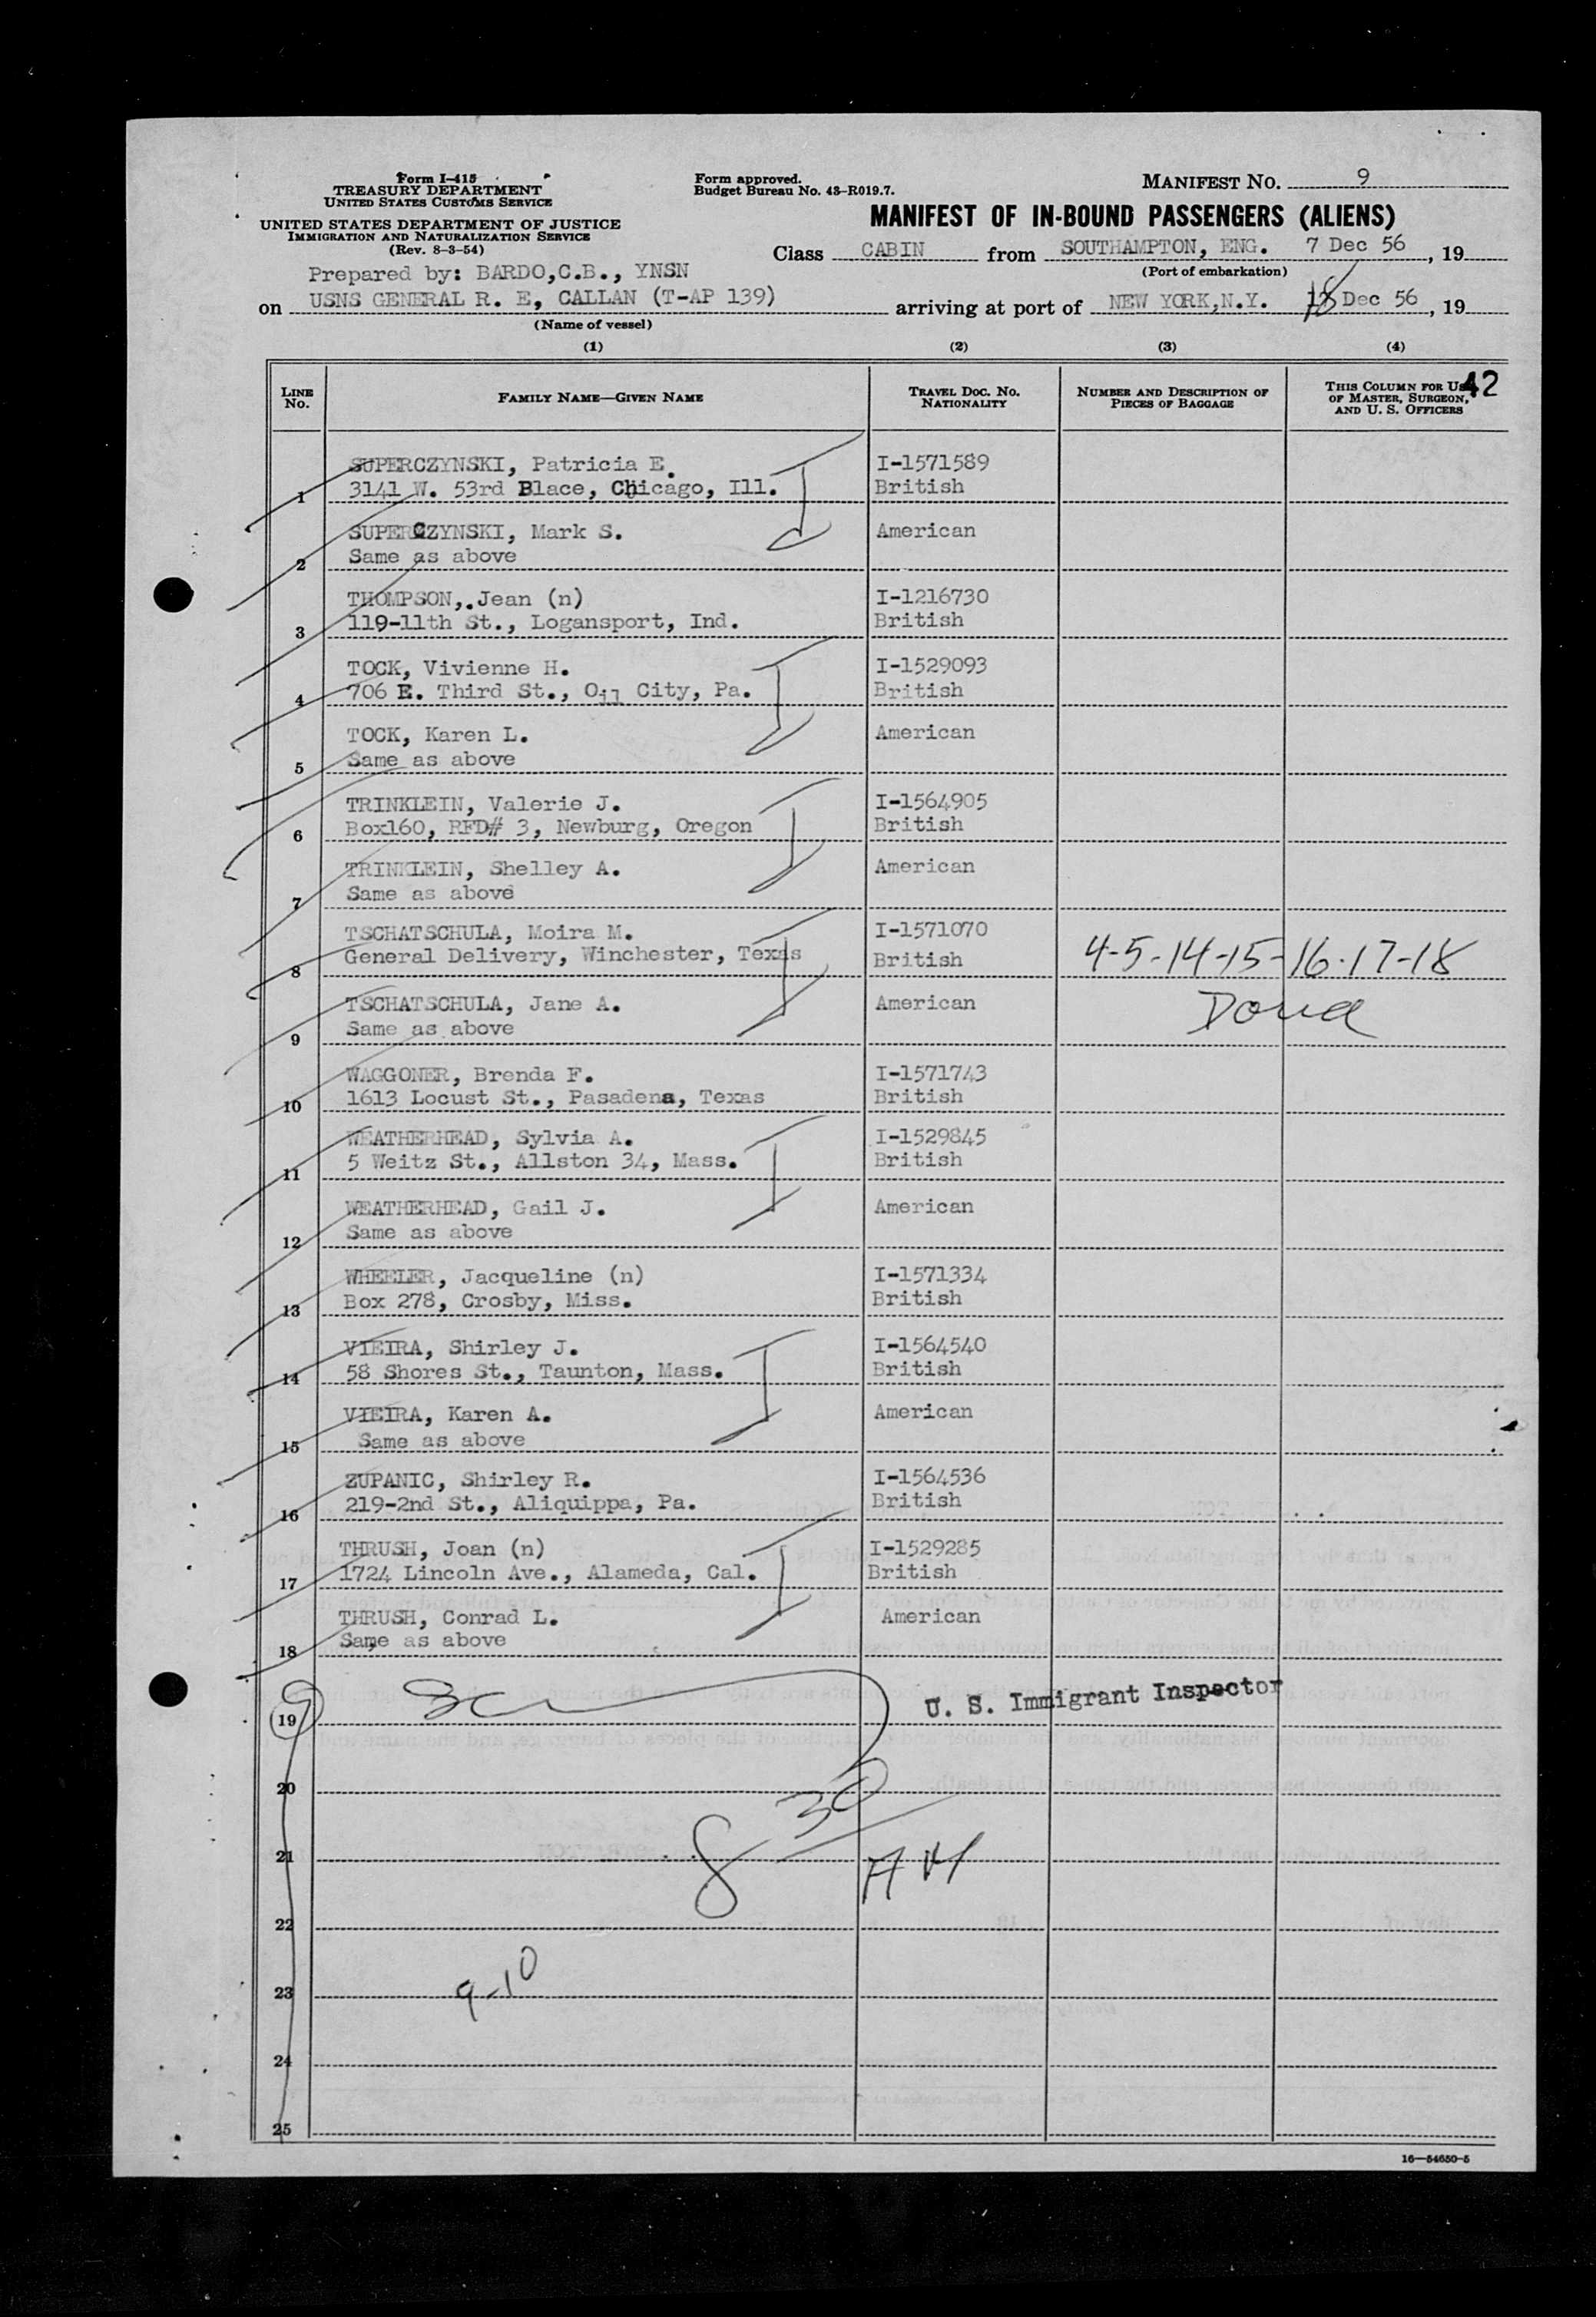 Form I-415
TREASURY DEPARTMENT
UNITED STATES CUSTOMS SERVICE
UNITED STATES DEPARTMENT OF JUSTICE
IMMIGRATION AND NATURALIZATION SERVICE
(Rev. 8-3-54)
Form approved.
Budget Bureau No. 43-R019.7.
MANIFEST NO. 9
MANIFEST OF IN-BOUND PASSENGERS (ALIENS)
Class CABIN from SOUTHAMPTON, ENG. 7 Dec 56, 19
(Port of embarkation)
Prepared by: BARDO,C.B., YNSN
on USNS GENERAL R. E, CALLAN (T-AP 139) arriving at port of NEW YORK,N.Y. 18 Dec 56, 19
(Name of vessel)
(1) (2) (3) (4)
LINE No. FAMILY NAME—GIVEN NAME TRAVEL DOC. NO. NATIONALITY NUMBER AND DESCRIPTION OF PIECES OF BAGGAGE THIS COLUMN FOR USE OF MASTER, SURGEON, AND U. S. OFFICERS
42
SUPERCZYNSKI, Patricia E. I-1571589
1 3141 W. 53rd Blace, Chicago, Ill. British
SUPERCZYNSKI, Mark S. American
2 Same as above
THOMPSON,.Jean (n) I-1216730
3 119-11th St., Logansport, Ind. British
TOCK, Vivienne H. I-1529093
4 706 E. Third St., Oil City, Pa. British
TOCK, Karen L. American
5 Same as above
TRINKLEIN, Valerie J. I-1564905
6 Box160, RFD# 3, Newburg, Oregon British
TRINKLEIN, Shelley A. American
7 Same as above
TSCHATSCHULA, Moira M. I-1571070
8 General Delivery, Winchester, Texas British 4-5-14-15-16-17-18
TSCHATSCHULA, Jane A. American
9 Same as above
WAGGONER, Brenda F. I-1571743
10 1613 Locust St., Pasadena, Texas British
WEATHERHEAD, Sylvia A. I-1529845
11 5 Weitz St., Allston 34, Mass. British
WEATHERHEAD, Gail J. American
12 Same as above
WHEELER, Jacqueline (n) I-1571334
13 Box 278, Crosby, Miss. British
VIEIRA, Shirley J. I-1564540
14 58 Shores St., Taunton, Mass. British
VIEIRA, Karen A. American
15 Same as above
ZUPANIC, Shirley R. I-1564536
16 219-2nd St., Aliquippa, Pa. British
THRUSH, Joan (n) I-1529285
17 1724 Lincoln Ave., Alameda, Cal. British
THRUSH, Conrad L. American
18 Same as above
U. S. Immigrant Inspector
19
20
21 8 30 AM
22
23 9-10
24
25
16—54650-5